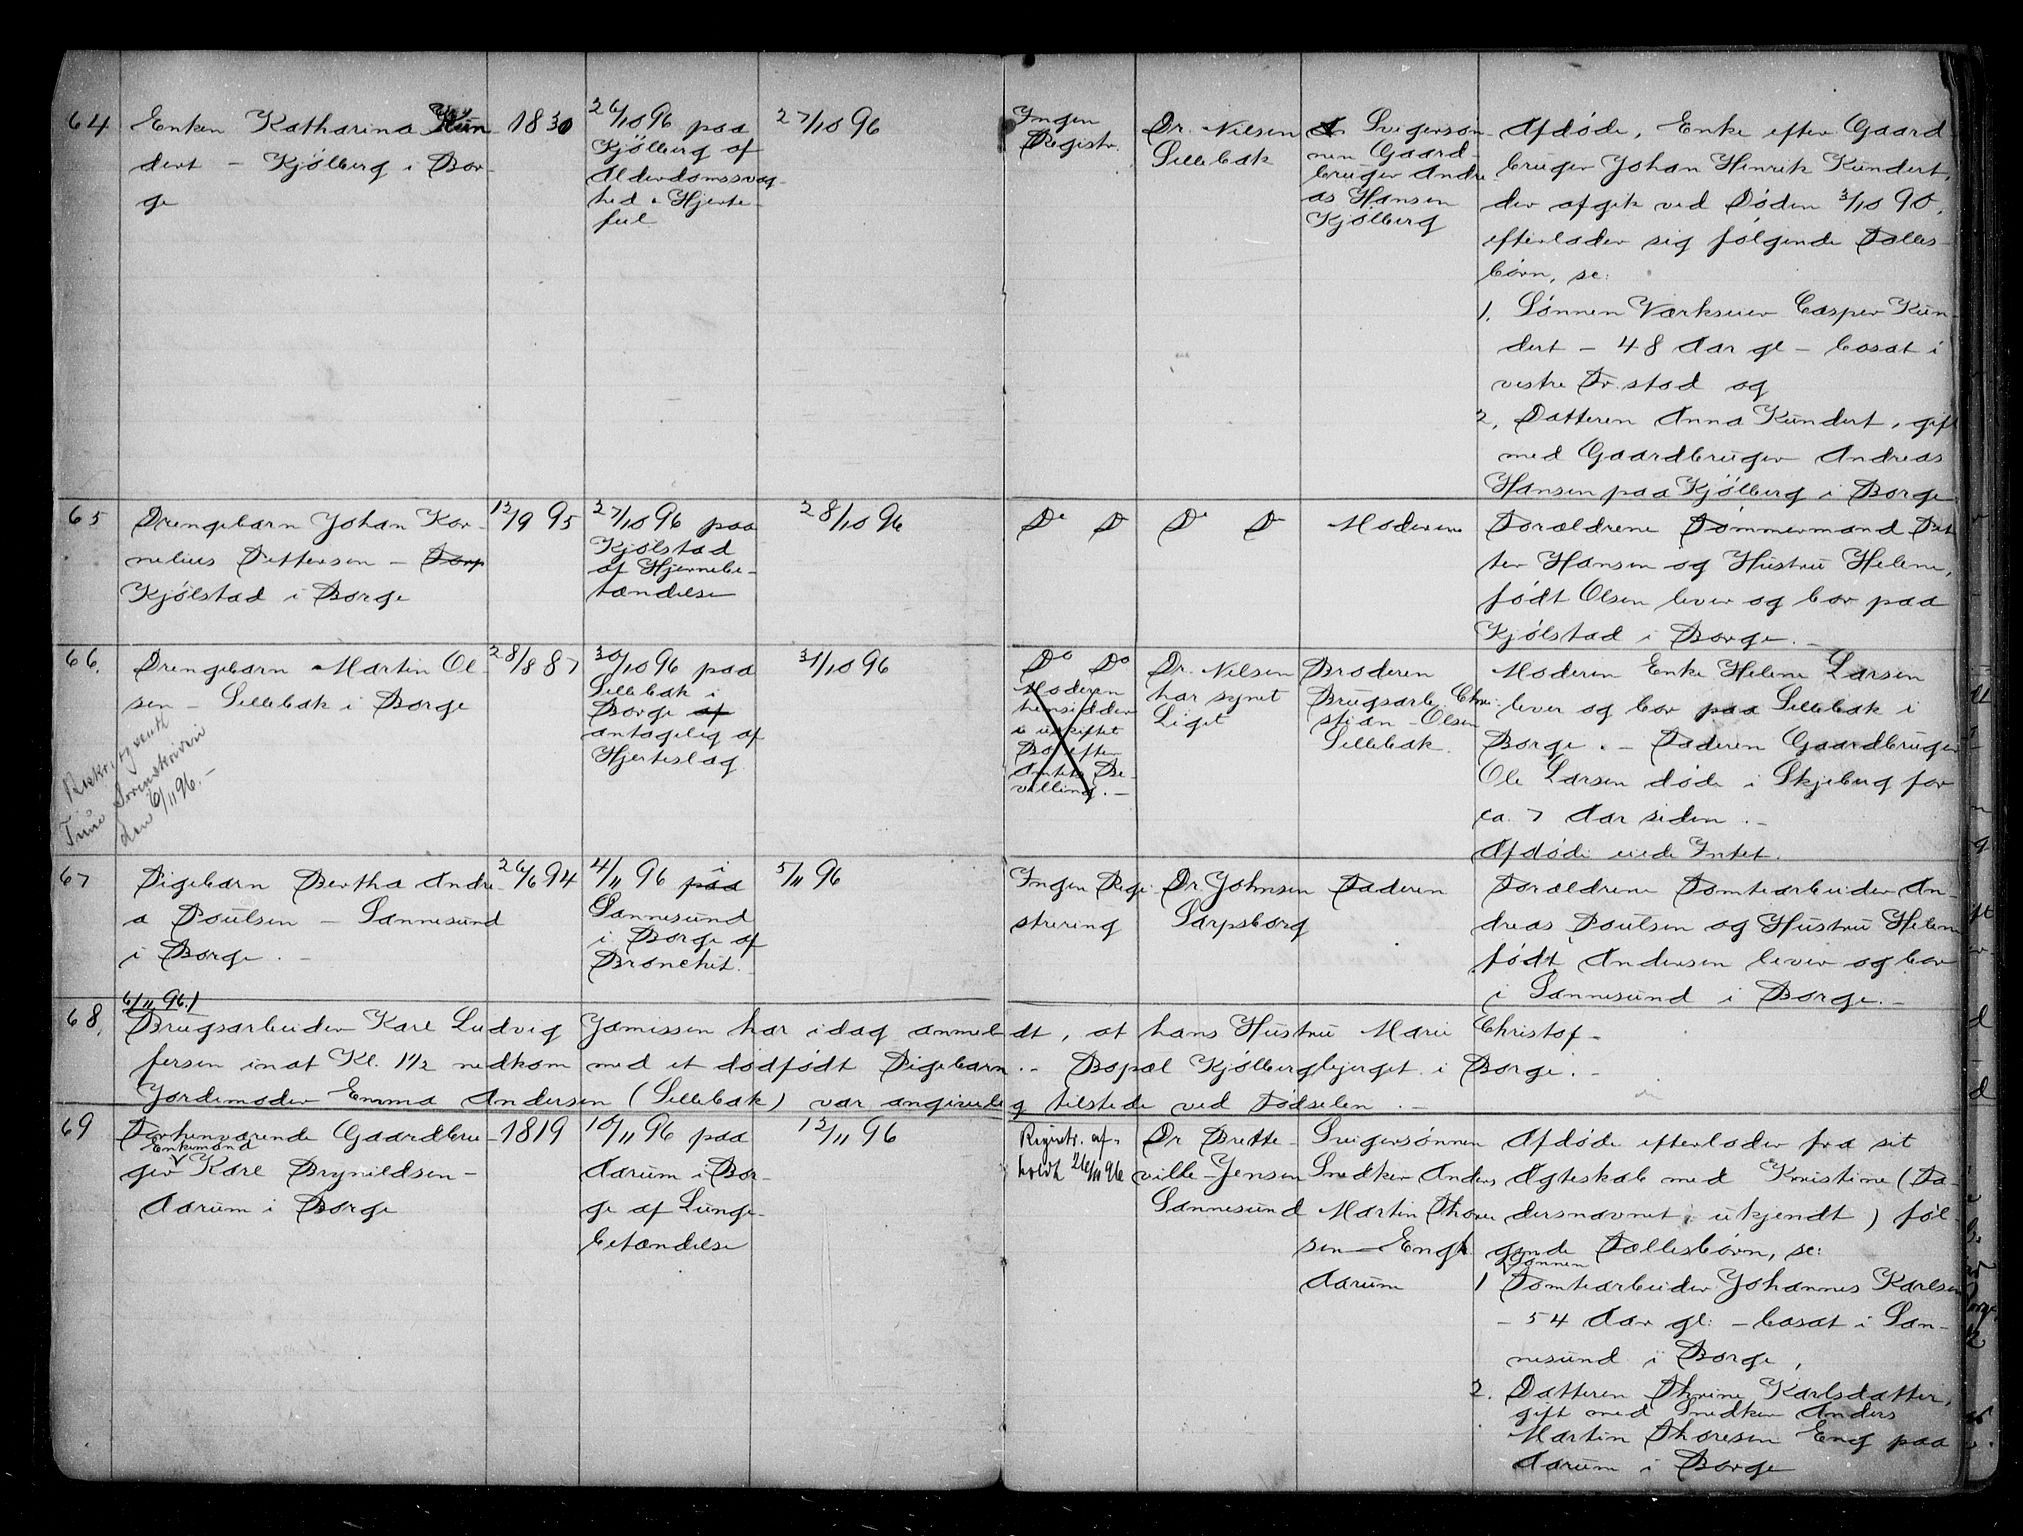 64
Enken Katharina Kün-
dert - Kjølberg i Bor-
ge
1830
26/10 96 paa
Kjølberg af
Alderdomssvag-
hed & Hjerte-
feil
27/10 96
Ingen
Registr.
Dr. Nilsen
Lillebak
Svigersøn-
nen Gaard-
bruger Andre-
as Hansen
Kjølberg
Afdøde, Enke efter Gaard-
bruger Johan Henrik Kündert,
der afgik ved Døden 3/10 90,
efterlader sig følgende Fælles-
børn, se:
1. Sønnen Værkseier Casper Kün-
dert - 48 Aar gl - bosat i
vestre Fr.stad og
2. Datteren Anna Kündert, gift
med Gaardbruger Andreas
Hansen paa Kjølberg i Borge
65
Drengebarn Johan Kor-
nelius Pettersen - Torp
Kjølstad i Borge
12/9 95
27/10 96 paa
Kjølstad
af Hjernebe-
tændelse
28/10 96
Do Do
Do Do
Moderen
Forældrene Tømmermand Pet-
ter Hansen og Hustru Helene,
født Olsen lever og bor paa
Kjølstad i Borge. -
66.
Drengebarn Martin Ol-
sen - Lillebak i Borge
28/8 87
30/10 96 paa
Lillebak i
Borge af
antagelig af
Hjerteslag
31/10 96
Do Do
Moderen
hensidder
i uskiftet
Bo efter
Amtets Be-
villing. -
Dr. Nilsen
har synet
Liget
Broderen
Brugsarb. Chri-
stian Olsen
Lillebak.
Moderen Enke Helene Larsen
lever og bor paa Lillebak i
Borge. - Faderen Gaardbruger
Ole Larsen døde i Skjeberg for
ca. 7 Aar siden. -
Afdøde eiede Intet.
Tune Sorenskriveri
den 6/11 96. -
67
Pigebarn Bertha Andre-
a Poulsen - Sannesund
i Borge. -
26/6 94
4/11 96 paa i
Sannesund
i Borge af
Bronchit.
5/11 96
Ingen Regi-
strering
Dr. Johnsen
Sarpsborg
Faderen
Forældrene Tomtearbeider An-
dreas Poulsen og Hustru Helene
født Andersen lever og bor
i Sannesund i Borge. -
6/11 96./
68.
Brugsarbeider Karl Ludvig Jamissen har idag anmeldt, at hans Hustru Marie Christof-
fersen inat Kl. 1½ nedkom med et dødfødt Pigebarn. - Bopæl Kjølbergbjerget i Borge. -
Jordemoder Emma Andersen (Lillebak) var angivelig tilstede ved Fødselen. -
69
Forhenværende Gaardbru-
Enkemand
ger Karl Brynildsen -
Aarum i Borge
1819
10/11 96 paa
Aarum i Bor-
ge af Lunge-
betændelse
12/11 96
Registr. af-
holdt 26/11 96
Dr Brette-
ville-Jensen
Sannesund
Svigersønnen
Snedker Anders
Martin Thore-
sen - Engh
Aarum
Afdøde efterlader fra sit
Ægteskab med Kristine (Fa-
dersnavnet ukjendt) føl-
gende Fællesbørn, se:
Sønnen
1 Tomtearbeider Johannes Karlsen
- 54 Aar gl: - bosat i San-
nesund i Borge,
2. Datteren Thrine Karlsdatter,
gift med Snedker Anders
Martin Thoresen Eng paa
Aarum i Borge